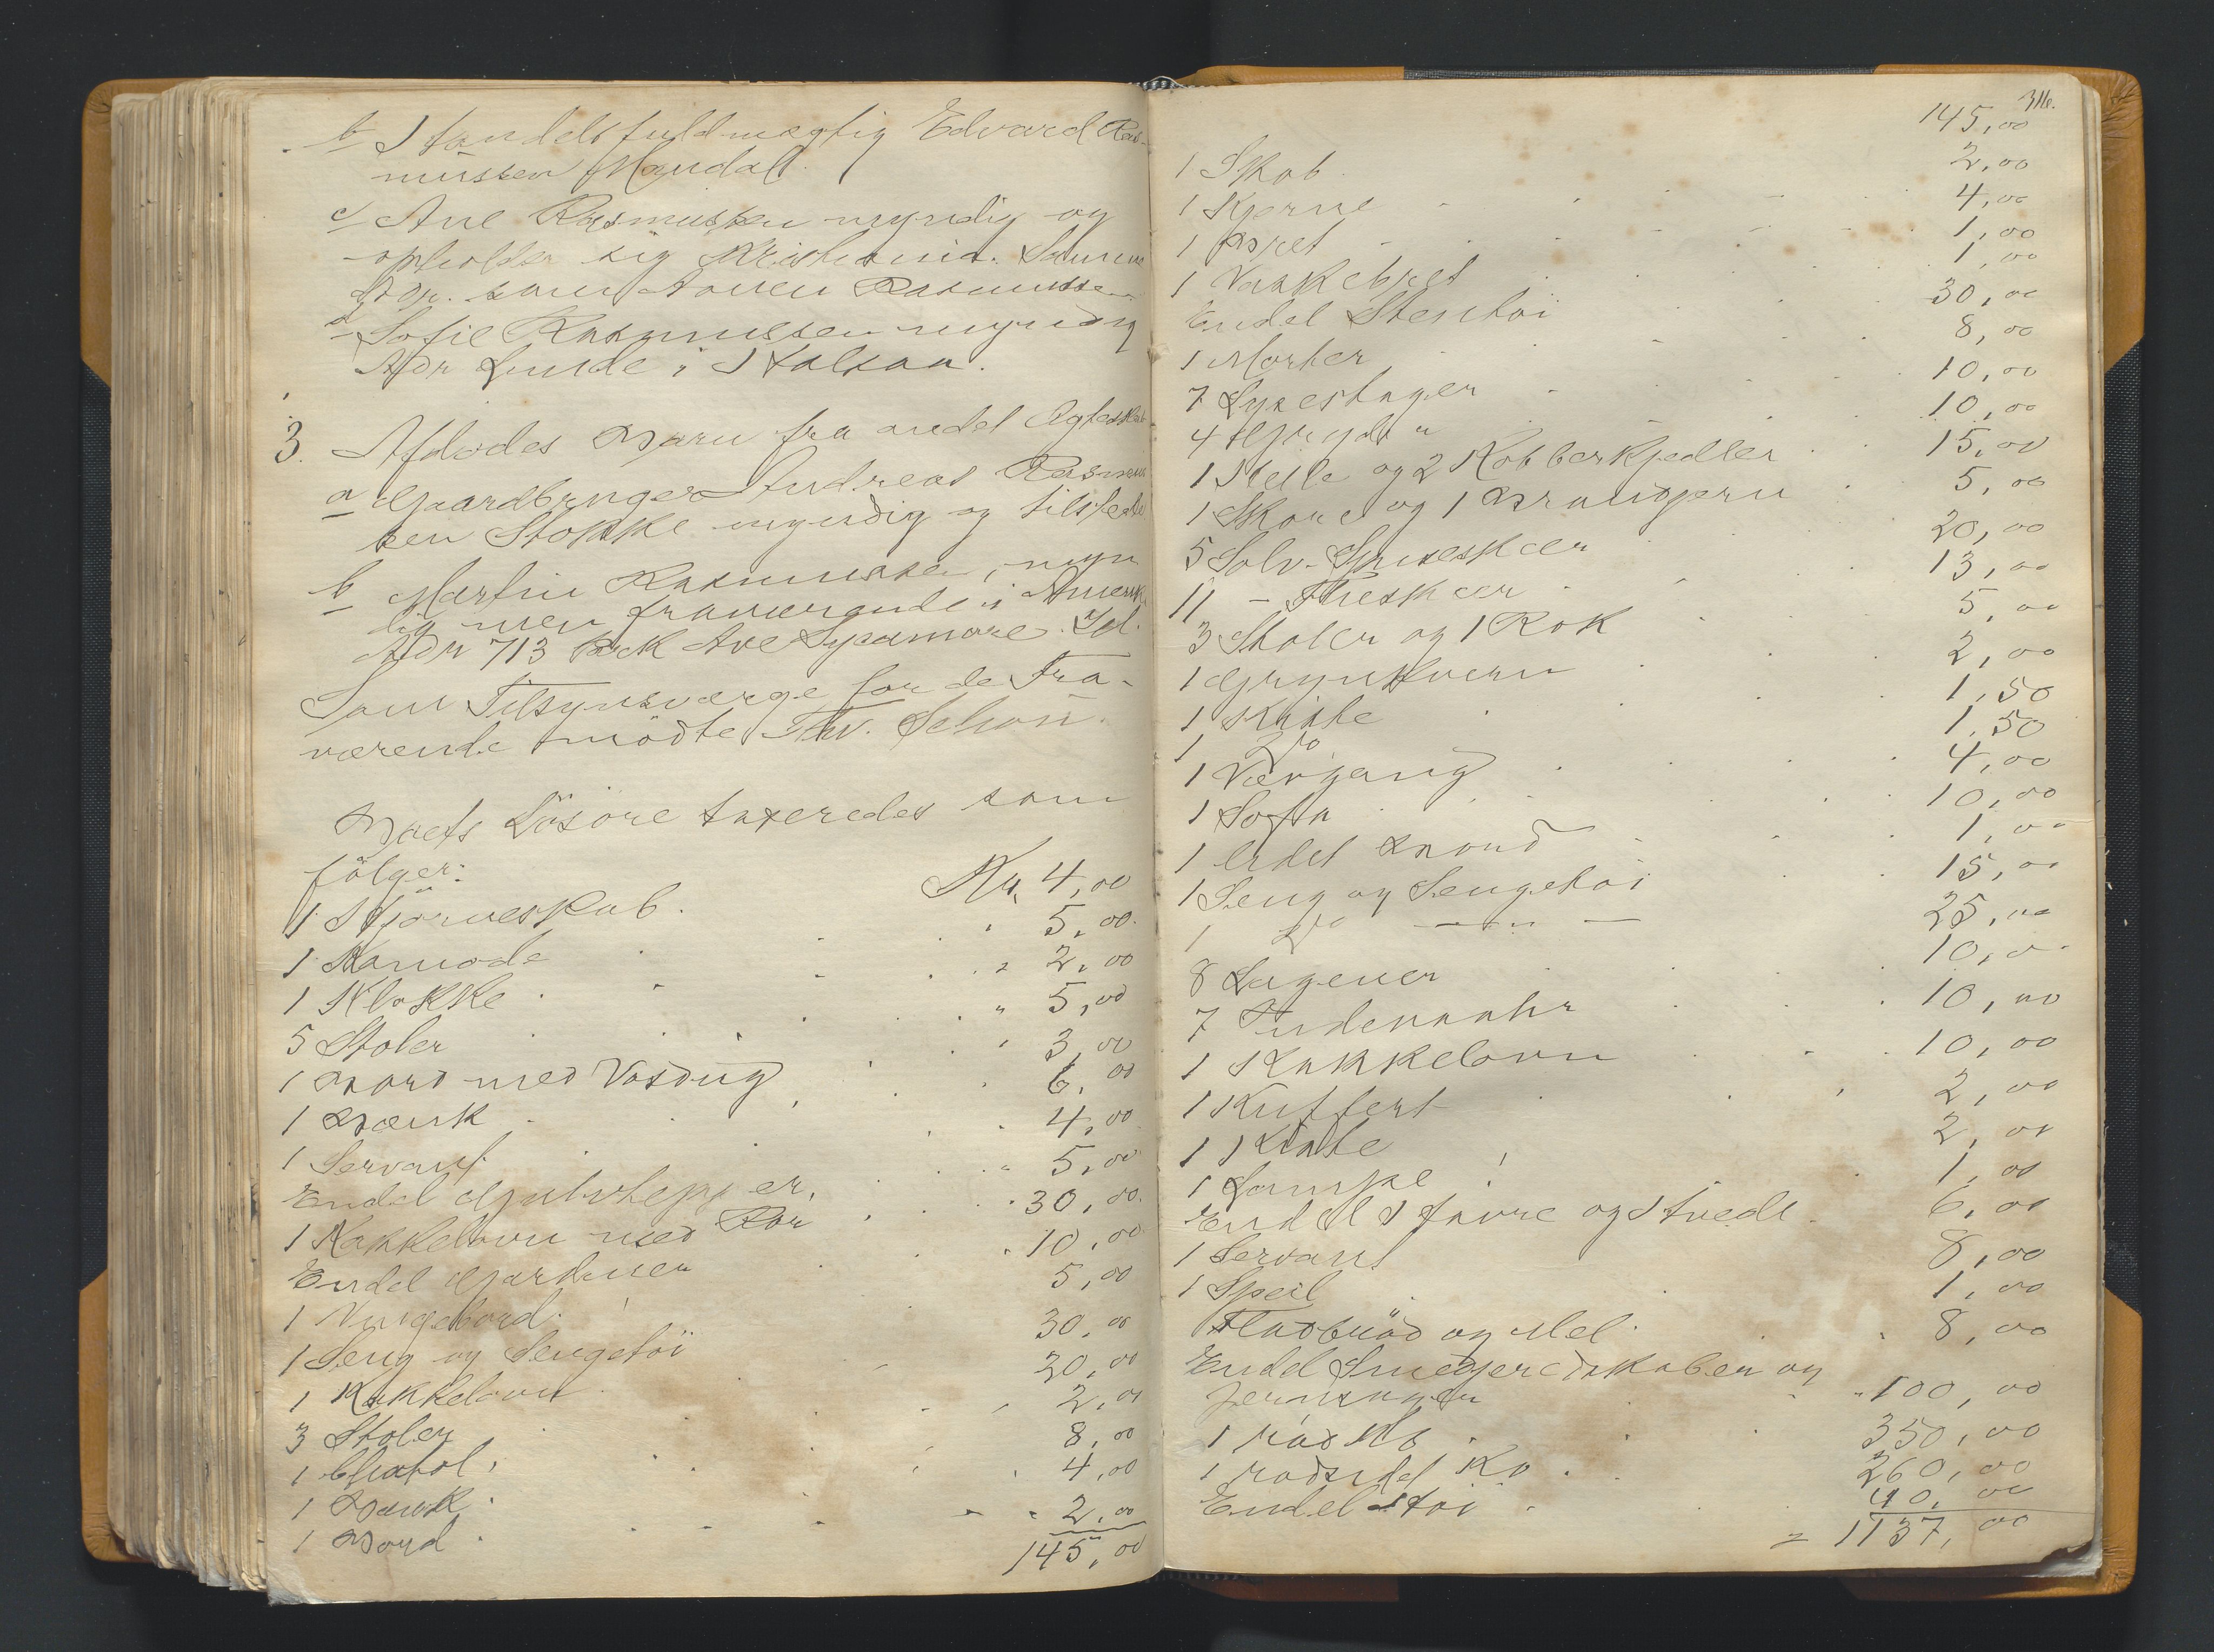 b Handelsfuldmægtig Edvard Ras-
mussen Mandal.
c Ane Rasmussen myndig og
opholder sig Kristiania. Samme
Adr. som Broren Rasmussen
d Sofie Rasmussen myndig
Adr Lunde i Halsaa.
3. Afdødes Barn fra andet Ægteskab
a Gaardbruger Andreas Rasmus
sen Stokke myndig og tilstede
b Martin Rasmussen, myn
dig men fraværende i Amerika
Adr 713 Park Ave Sycamore Ill.
Som Tilsynsværge for de Fra-
værende mödte Thv. Schøn.
Boets Lösöre taxeredes som
fölger:
1 Hjörneskab. Kr. 4,00
1 Komode " 5,00
1 Klokke " 2,00
5 Stoler " 5,00
1 Bord med Voxdug 3,00
1 Bænk 6,00
1 Servant 4,00
Endel Gulvtepper, " 5,00
1 Kakkelovn med Rør 30,00
Endel Gardiner 10,00
1 Vingebord. 5,00
1 Seng og Sengetöi 30,00
1 Kakkelovn 20,00
3 Stoler 2,00
1 Chatol, 8,00
1 Bænk 4,00
1 Bord 2,00
145,00
316.
145,00
1 Skab 2,00
1 Kjerne 4,00
1 Bret 1,00
1 Vaskebret 1,00
Endel Stentöi 30,00
1 Morter 8,00
7 Lysestager 10,00
4 Gryder 10,00
1 Kjele og 2 Kobberkjedler 15,00
1 og 1 5,00
5 Sölv-Spiseskeer 20,00
11 – Theskeer 13,00
3 Stoler og 1 Rok 5,00
1 Grynkvern 2,00
1 Kiste 1,50
1 Do 1,50
1 4,00
1 Sofa 10,00
1 lidet Bord 1,00
1 Seng og Sengetöi 15,00
1 Do — " — 25,00
8 Lagener 10,00
7 Pudevahr 10,00
1 Kakkelovn 10,00
1 Kuffert 2,00
1 Kiste 2,00
1 Lampe 1,00
Endel Havre og Hvede 6,00
1 Servant 8,00
1 Speil 1,00
Fladbröd og Mel 8,00
Endel Smedjeredskaber og
jernsager 100,00
1 rød Ko 350,00
1 rødsidet Ko 260,00
Endel Höi 40,00
= 1137,00